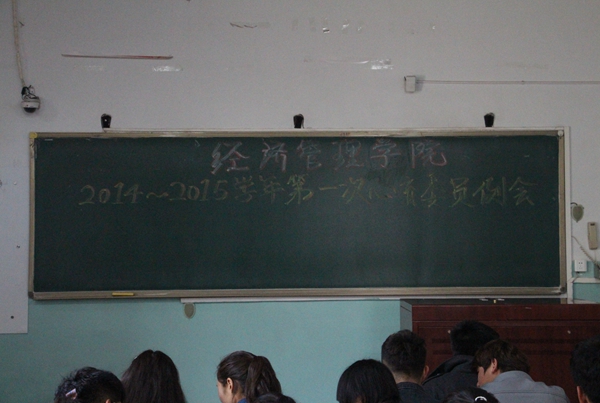 经济管理学院
2014～2015学年第一次心语委员例会